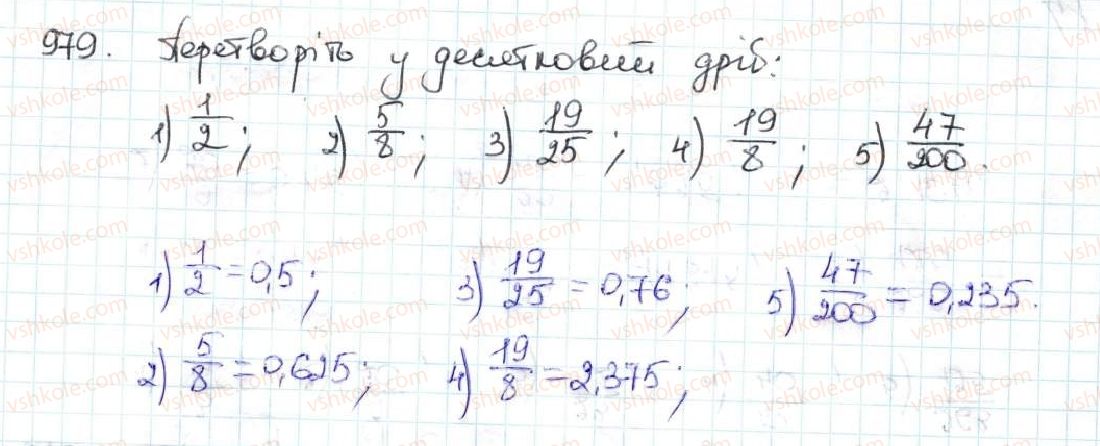 979. Перетворіть у десятковий дріб:
1) 1/2; 2) 5/8; 3) 19/25; 4) 19/8; 5) 47/200.
1) 1/2 = 0,5; 3) 19/25 = 0,76; 5) 47/200 = 0,235.
2) 5/8 = 0,625; 4) 19/8 = 2,375;